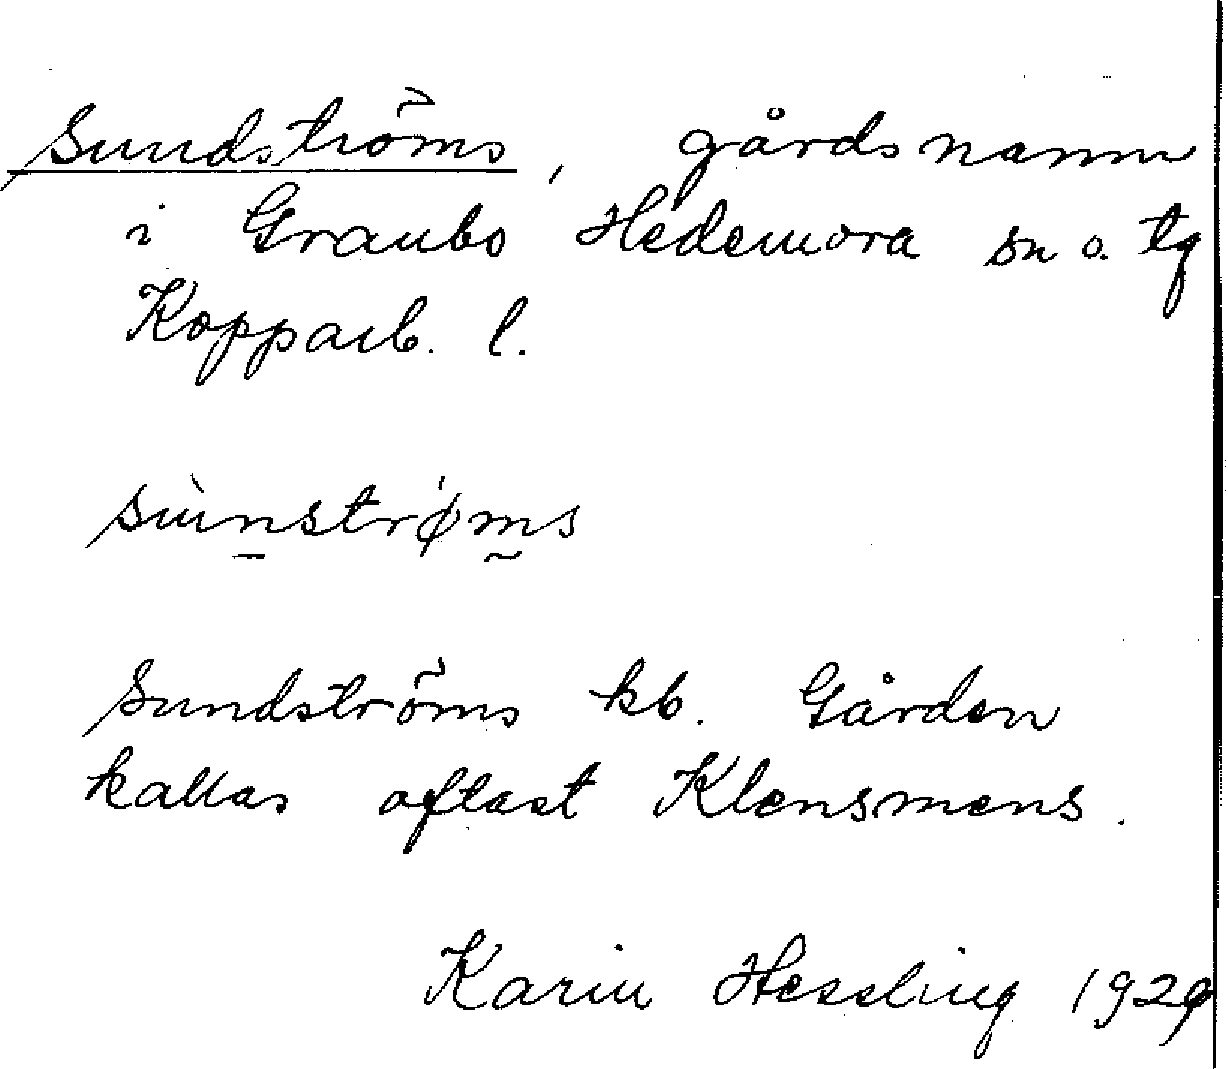 Sundströms, gårdsnamn
i Graubo Hedemora sn o. tg
Kopparb. l.
sùn̲strǿm̰s
Sundströms kb. Gården
kallas oftast Klensmens.
Karin Hessling 1929